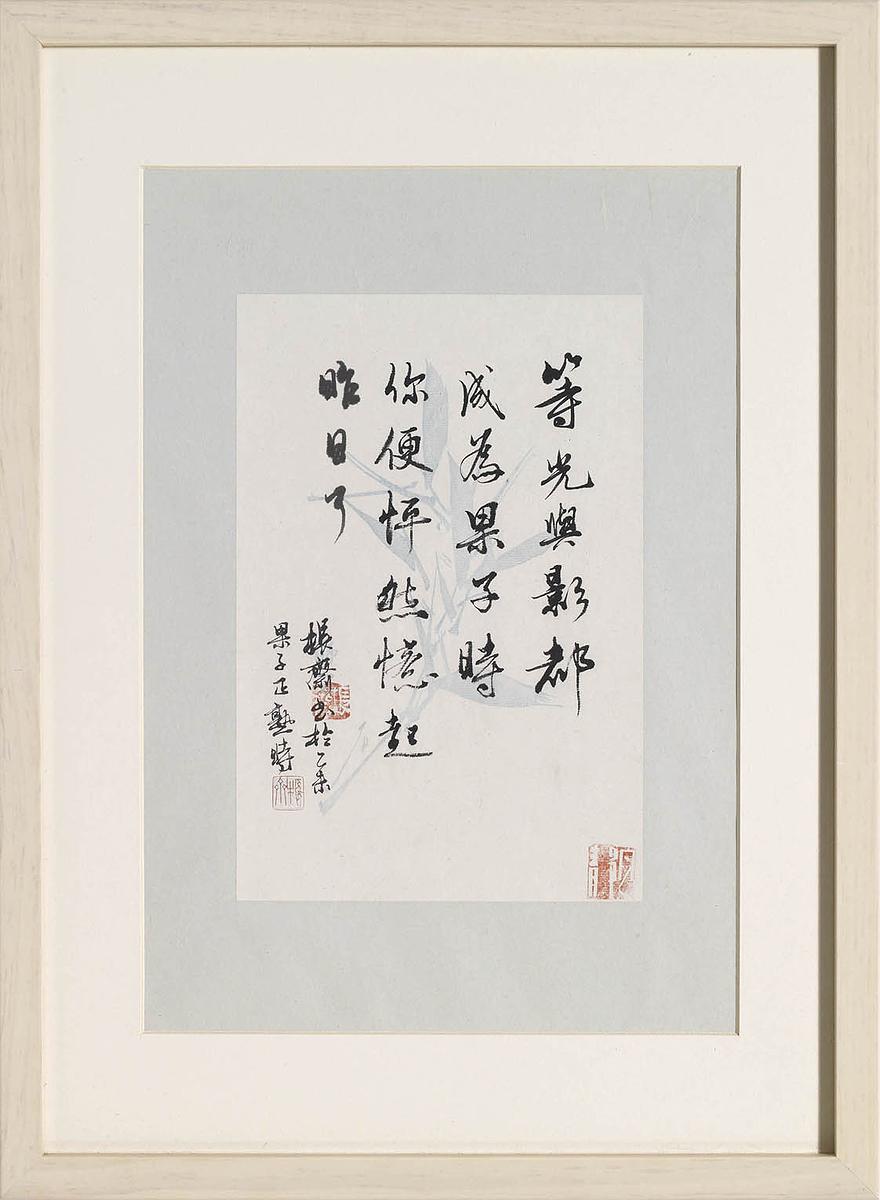 等光與影都
成為果子時
你便怦然憶起
昨日了
振齋書於乙未
果子正熟時